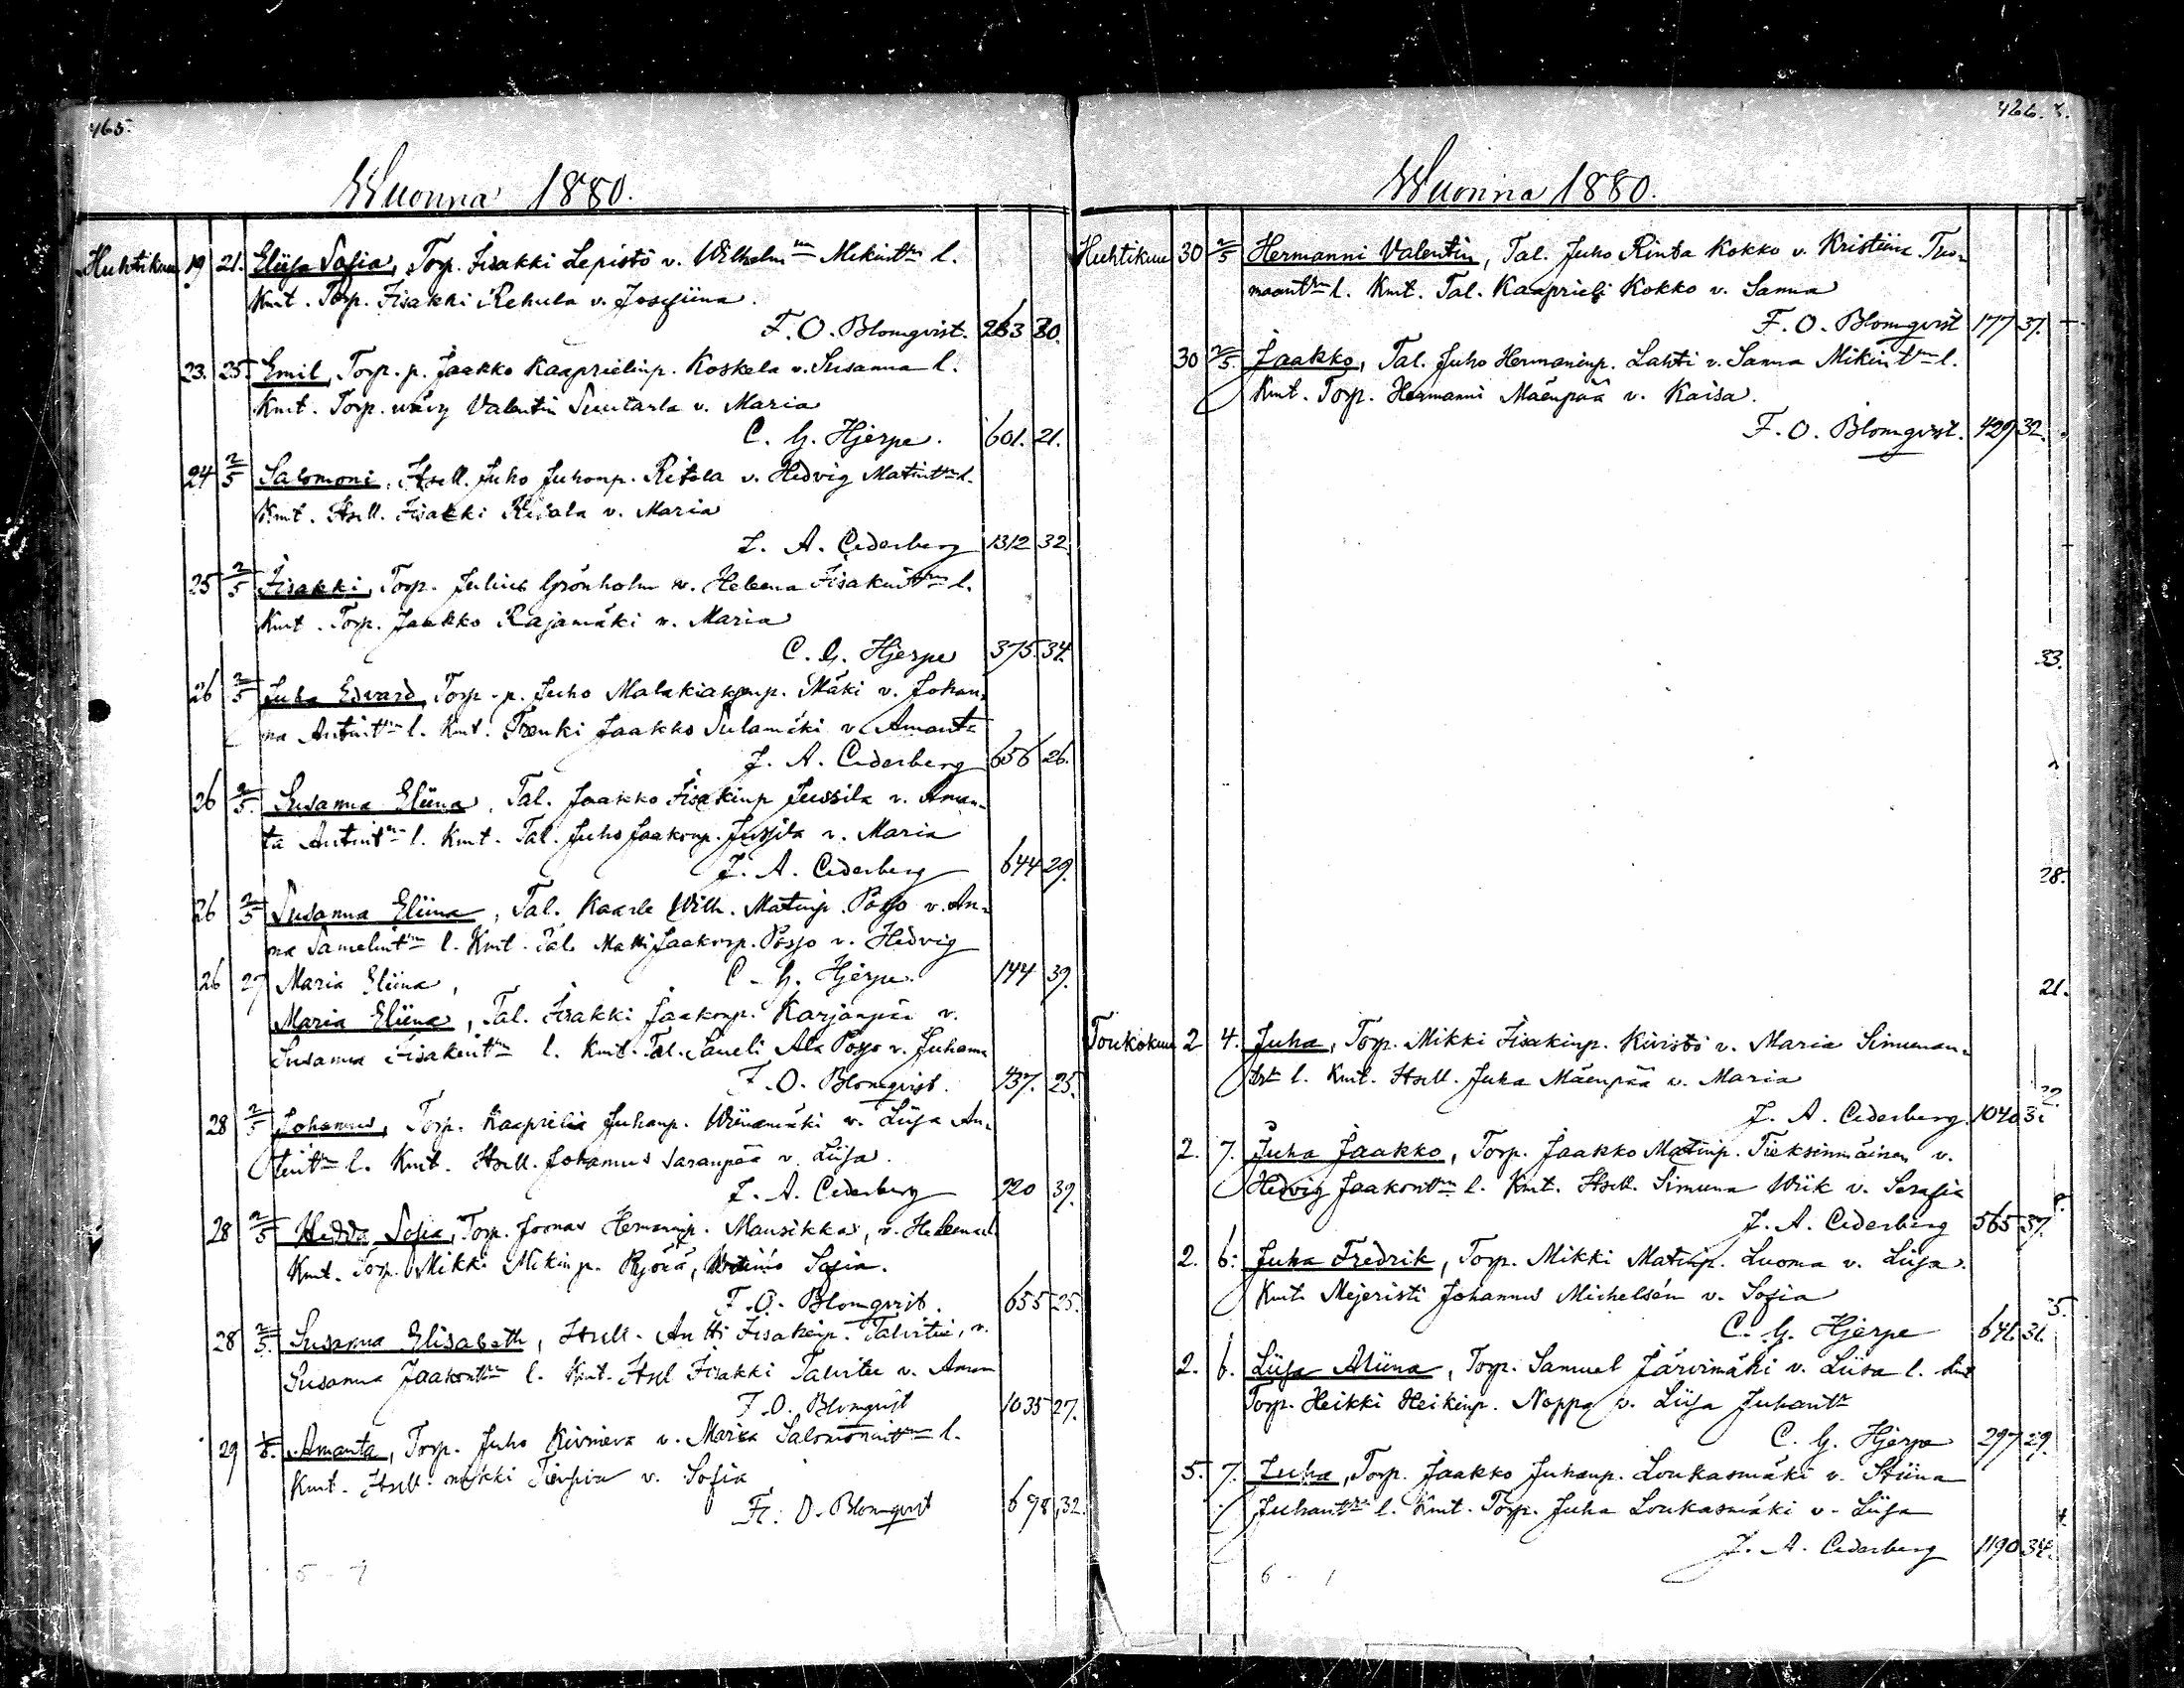 465.
Wuonna 1880.
Huhtikuu 19 21. Eliisa Sofia, Torp. Iisakki Lepistö v. Wilhelmiina Mikintr l.
Kmt. Torp. Iisakki Rekula v. Josefiina.
F. O. Blomqvist. 263 30.
23. 25. Emil, Torp. p. Jaakko Kaaprielinp. Koskela v. Susanna l.
Kmt. Torp. wävy Valentin Suutarla v. Maria
C. G. Hjerpe. 601. 21.
24 2/5 Salomoni, Itsell. Juho Juhonp. Ritola v. Hedvig Matintr l.
Kmt. Itsell. Iisakki Ritala v. Maria
J. A. Cederberg 1312 32.
25 2/5 Iisakki, Torp. Julius Grönholm v. Heleena Iisakintr l.
Kmt. Torp. Jaakko Rajamäki v. Maria
C. G. Hjerpe 375. 34.
26 2/5 Juha Edvard, Torp. p. Juho Malakiaksenp. Mäki v. Johan-
na Antintr l. Kmt. Trenki Jaakko Sulamäki v. Amanta
J. A. Cederberg 656 26.
26 2/5. Susanna Eliina, Tal. Jaakko Iisakinp Jussila v. Aman-
ta Antintr l. Kmt. Tal. Juho Jaakonp. Jussila v. Maria
J. A. Cederberg 644 29.
26 2/5 Susanna Eliina, Tal. Kaarle Wilh. Matinp. Posjo v. An-
na Samelintr l. Kmt. Tal. Matti Jaakonp. Posjo v. Hedvig
26 27 Maria Eliina, C. G. Hjerpe. 144 39.
Maria Eliina, Tal. Iisakki Jaakonp. Karjanpää v.
Susanna Iisakintr l. Kmt. Tal. Saueli Ala Posjo v. Juhana
F. O. Blomqvist. 437. 25.
28 2/5 Johannes, Torp. Kaaprieli Juhanp. Wiinamäki v. Liisa An-
tintr l. Kmt. Itsell. Johannes Saranpää v. Liisa.
J. A. Cederberg 920 39.
28 2/5 Hedda Sofia, Torp. Joonas Hermannip. Mansikkas, v. Heleena l.
Kmt. Torp. Mikki Mikinp. Pyörä, Sofia.
F. O. Blomqvist. 655 25.
28 2/5. Susanna Elisabeth, Itsell. Antti Iisakinp. Talvitie, v.
Susanna Jaakontr l. Kmt. Itsel Iisakki Talvitie v. Aman
F. O. Blomqvist 1035 27.
29 6. Amanta, Torp. Juho Kivineva v. Maria Salomonintr l.
Kmt. Itsell. v. Sofia
F. O. Blomqvist 698 32.
466.
Wuonna 1880.
Huhtikuu 30 2/5 Hermanni Valentin, Tal. Juho Rinta Kokko v. Kristiina Tuo-
maantr l. Kmt. Tal. Kaaprieli Kokko v. Sanna
F. O. Blomqvist 177 37.
30 2/5. Jaakko, Tal. Juho Hermaninp. Lahti v. Sanna Mikintr l.
Kmt. Torp. Hermanni Mäenpää v. Kaisa.
F. O. Blomqvist. 429 32.
33.
28.
21.
Toukokuu 2 4. Juha, Torp. Mikki Iisakinp. Kivistö v. Maria Simunan-
tr l. Kmt. Itsell. Juha Mäenpää v. Maria
J. A. Cederberg. 1040
2. 7. Juha Jaakko, Torp. Jaakko Matinp. Tieksinmäinen v.
Hedvig Jaakontr l. Kmt. Itsell. Simuna Wiik v. Serafia
J. A. Cederberg 565 37.
2. 6. Juha Fredrik, Torp. Mikki Matinp. Luoma v. Liisa.
Kmt. Mejeristi Johannes Michelsén v. Sofia
C. G. Hjerpe 641. 31.
2. 6. Liisa Aliina, Torp. Samuel Järvimäki v. Liisa l. Kmt
Torp. Heikki Heikinp. Noppa v. Liisa Juhantr
C. G. Hjerpe 297 29.
5. 7. Juha, Torp. Jaakko Juhanp. Loukasmäki v. Stiina
Juhantr l. Kmt. Torp. Juha Loukasmäki v. Liisa
J. A. Cederberg 1190 34.